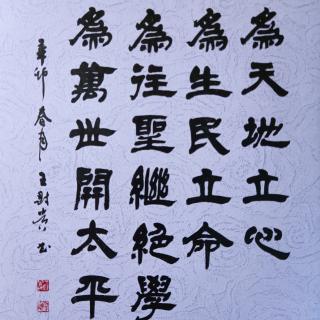 為天地立心
為生民立命
為往聖繼絕學
為萬世開太平
辛卯春月王尉賓书